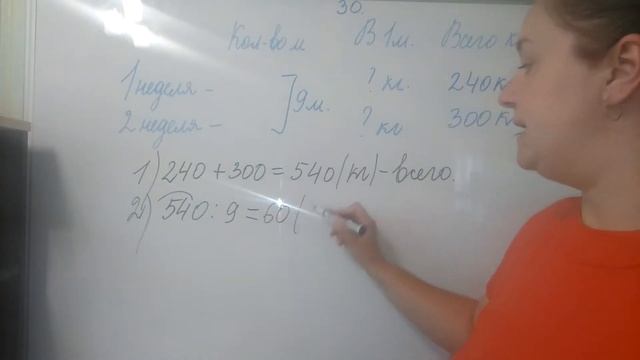 30.
Кол-во м В 1м. Всего к
1 неделя - ? кг. 240 к
9м.
2 неделя - ? кг 300 к
1) 240 + 300 = 540 (кг) - всего.
2) 540 : 9 = 60 (